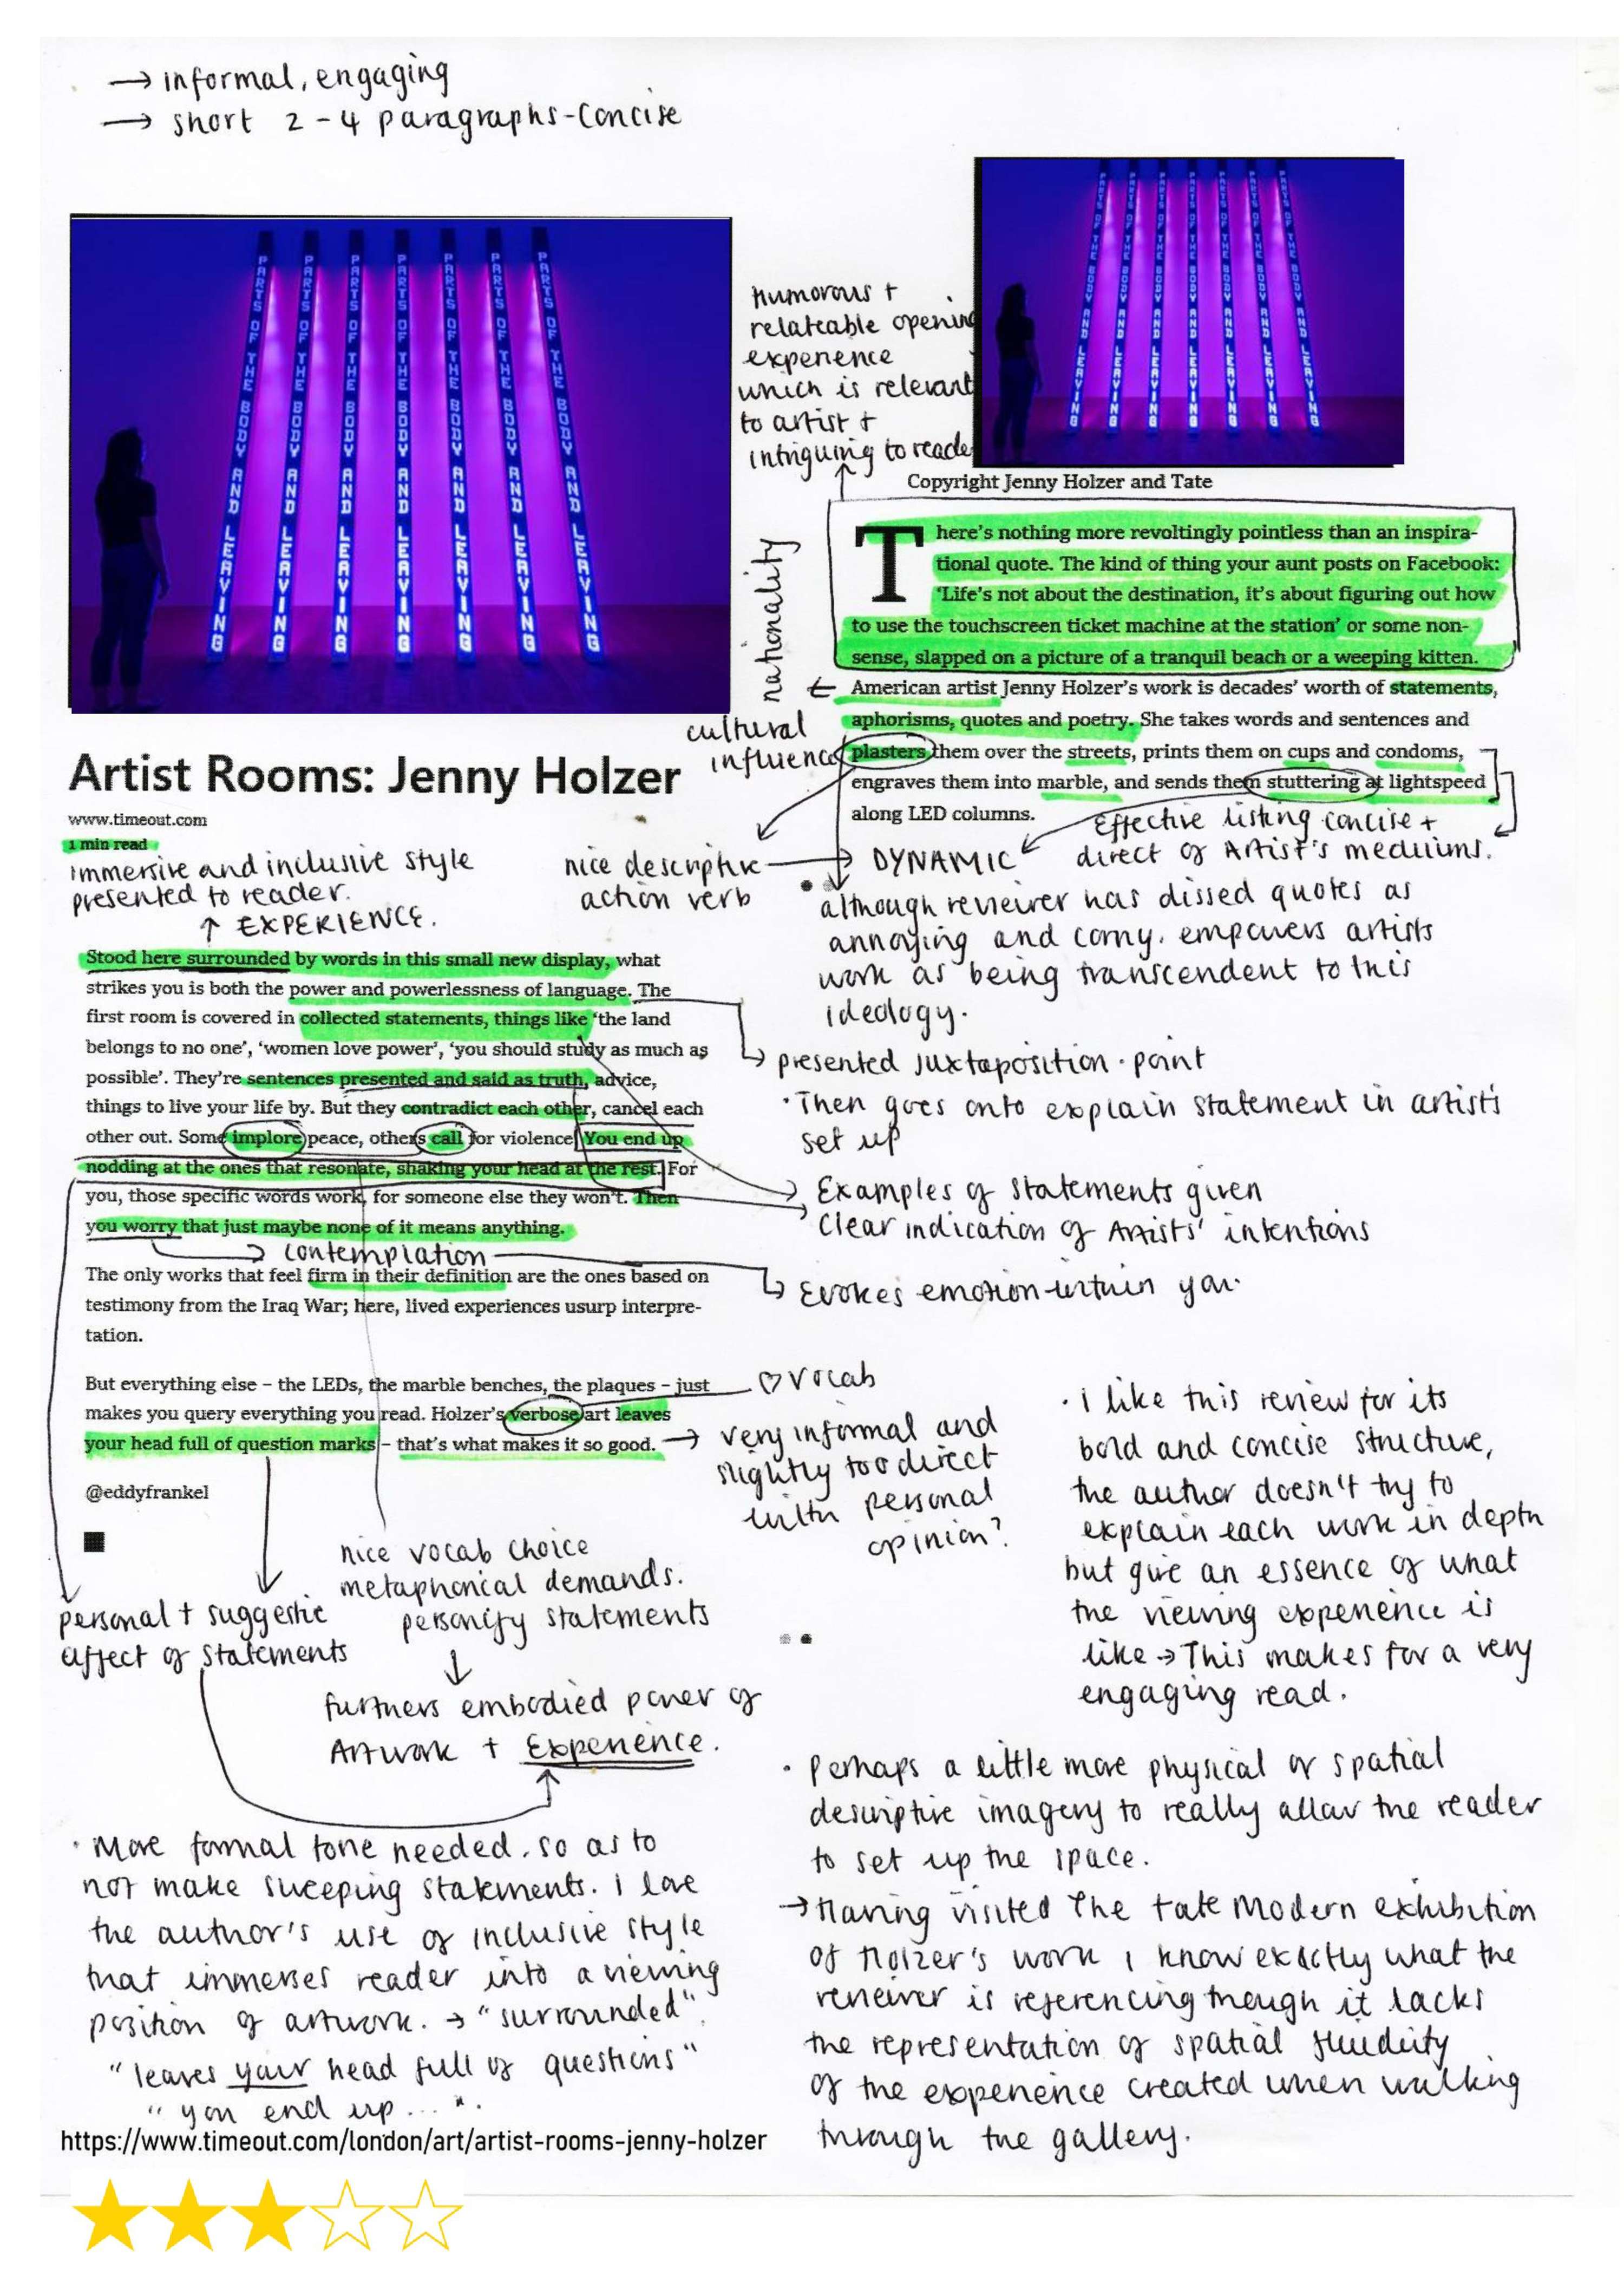 → informal, engaging
→ short 2-4 paragraphs-concise
PARTS OF THE BODY AND LEAVING
PARTS OF THE BODY AND LEAVING
PARTS OF THE BODY AND LEAVING
PARTS OF THE BODY AND LEAVING
PARTS OF THE BODY AND LEAVING
PARTS OF THE BODY AND LEAVING
PARTS OF THE BODY AND LEAVING
PARTS OF THE BODY AND LEAVING
PARTS OF THE BODY AND LEAVING
PARTS OF THE BODY AND LEAVING
PARTS OF THE BODY AND LEAVING
PARTS OF THE BODY AND LEAVING
PARTS OF THE BODY AND LEAVING
PARTS OF THE BODY AND LEAVING
Humorous +
relateable opening
experience
which is relevant
to artist +
intriguing to reade
Copyright Jenny Holzer and Tate
There's nothing more revoltingly pointless than an inspira-
tional quote. The kind of thing your aunt posts on Facebook:
'Life's not about the destination, it's about figuring out how
to use the touchscreen ticket machine at the station' or some non-
sense, slapped on a picture of a tranquil beach or a weeping kitten.
American artist Jenny Holzer's work is decades' worth of statements,
aphorisms, quotes and poetry. She takes words and sentences and
plasters them over the streets, prints them on cups and condoms,
engraves them into marble, and sends them stuttering at lightspeed
along LED columns.
nationality
cultural
influence
Effective listing concise +
direct of Artist's mediums.
nice descriptive
action verb
→ DYNAMIC
although reviewer has dissed quotes as
annoying and corny. empowers artists
work as being transcendent to this
ideology.
Artist Rooms: Jenny Holzer
www.timeout.com
1 min read
immersive and inclusive style
presented to reader.
↑ EXPERIENCE.
Stood here surrounded by words in this small new display, what
strikes you is both the power and powerlessness of language. The
first room is covered in collected statements, things like 'the land
belongs to no one', 'women love power', 'you should study as much as
possible'. They're sentences presented and said as truth, advice,
things to live your life by. But they contradict each other, cancel each
other out. Some implore peace, others call for violence. You end up
nodding at the ones that resonate, shaking your head at the rest. For
you, those specific words work, for someone else they won't. Then
you worry that just maybe none of it means anything.
→ contemplation
The only works that feel firm in their definition are the ones based on
testimony from the Iraq War; here, lived experiences usurp interpre-
tation.
But everything else – the LEDs, the marble benches, the plaques – just
makes you query everything you read. Holzer's verbose art leaves
your head full of question marks – that's what makes it so good.
@eddyfrankel
presented juxtaposition · point
· Then goes onto explain statement in artists
set up
Examples of statements given
Clear indication of Artists' intentions
Evokes emotion within you.
♡ vocab
→ very informal and
slightly too direct
with personal
opinion?
· I like this review for its
bold and concise structure,
the author doesn't try to
explain each work in depth
but give an essence of what
the viewing experience is
like → This makes for a very
engaging read.
nice vocab choice
metaphorical demands.
personify statements
↓
furthers embodied power of
Artwork + Experience.
personal + suggestic
affect of statements
· Perhaps a little more physical or spatial
descriptive imagery to really allow the reader
to set up the space.
→ Having visited The Tate Modern exhibition
of Holzer's work I know exactly what the
reveiwer is referencing though it lacks
the representation of spatial fluidity
of the experience created when walking
through the gallery.
· More formal tone needed. so as to
not make sweeping statements. I love
the author's use of inclusive style
that immerses reader into a viewing
position of artwork. → "surrounded".
"leaves your head full of questions"
"you end up...".
https://www.timeout.com/london/art/artist-rooms-jenny-holzer